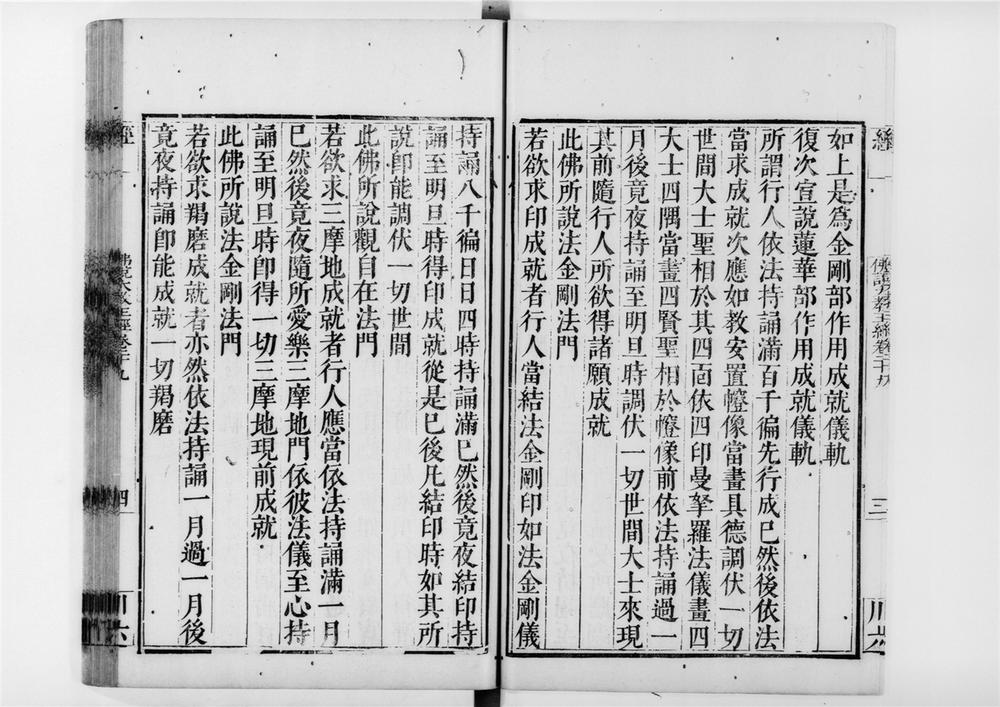 經
佛說大教王經卷二十九
三
川六
如上是爲金剛部作用成就儀軌
復次宣說蓮華部作用成就儀軌
所謂行人依法持誦滿百千徧先行成已然後依法
當求成就次應如教安置㡧像當畫具德調伏一切
世間大士聖相於其四面依四印曼拏羅法儀畫四
大士四隅當畫四賢聖相於㡧像前依法持誦過一
月後竟夜持誦至明旦時調伏一切世間大士來現
其前隨行人所欲得諸願成就
此佛所說法金剛法門
若欲求印成就者行人當結法金剛印如法金剛儀
持誦八千徧日日四時持誦滿已然後竟夜結印持
誦至明旦時得印成就從是已後凡結印時如其所
說卽能調伏一切世間
此佛所說觀自在法門
若欲求三摩地成就者行人應當依法持誦滿一月
已然後竟夜隨所愛樂三摩地門依彼法儀至心持
誦至明旦時卽得一切三摩地現前成就
此佛所說法金剛法門
若欲求羯磨成就者亦然依法持誦一月過一月後
竟夜持誦卽能成就一切羯磨
經
佛說大教王經卷二十九
四
川六